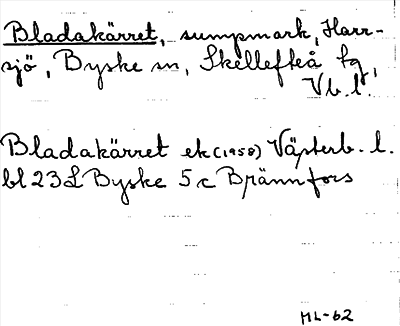 Bladakärret, sumpmark, Harr-
sjö, Byske sn, Skellefteå tg,
Vb. l.
Bladakärret ek (1958) Västerb. l.
bl 23L Byske 5c Brännfors
ML-62